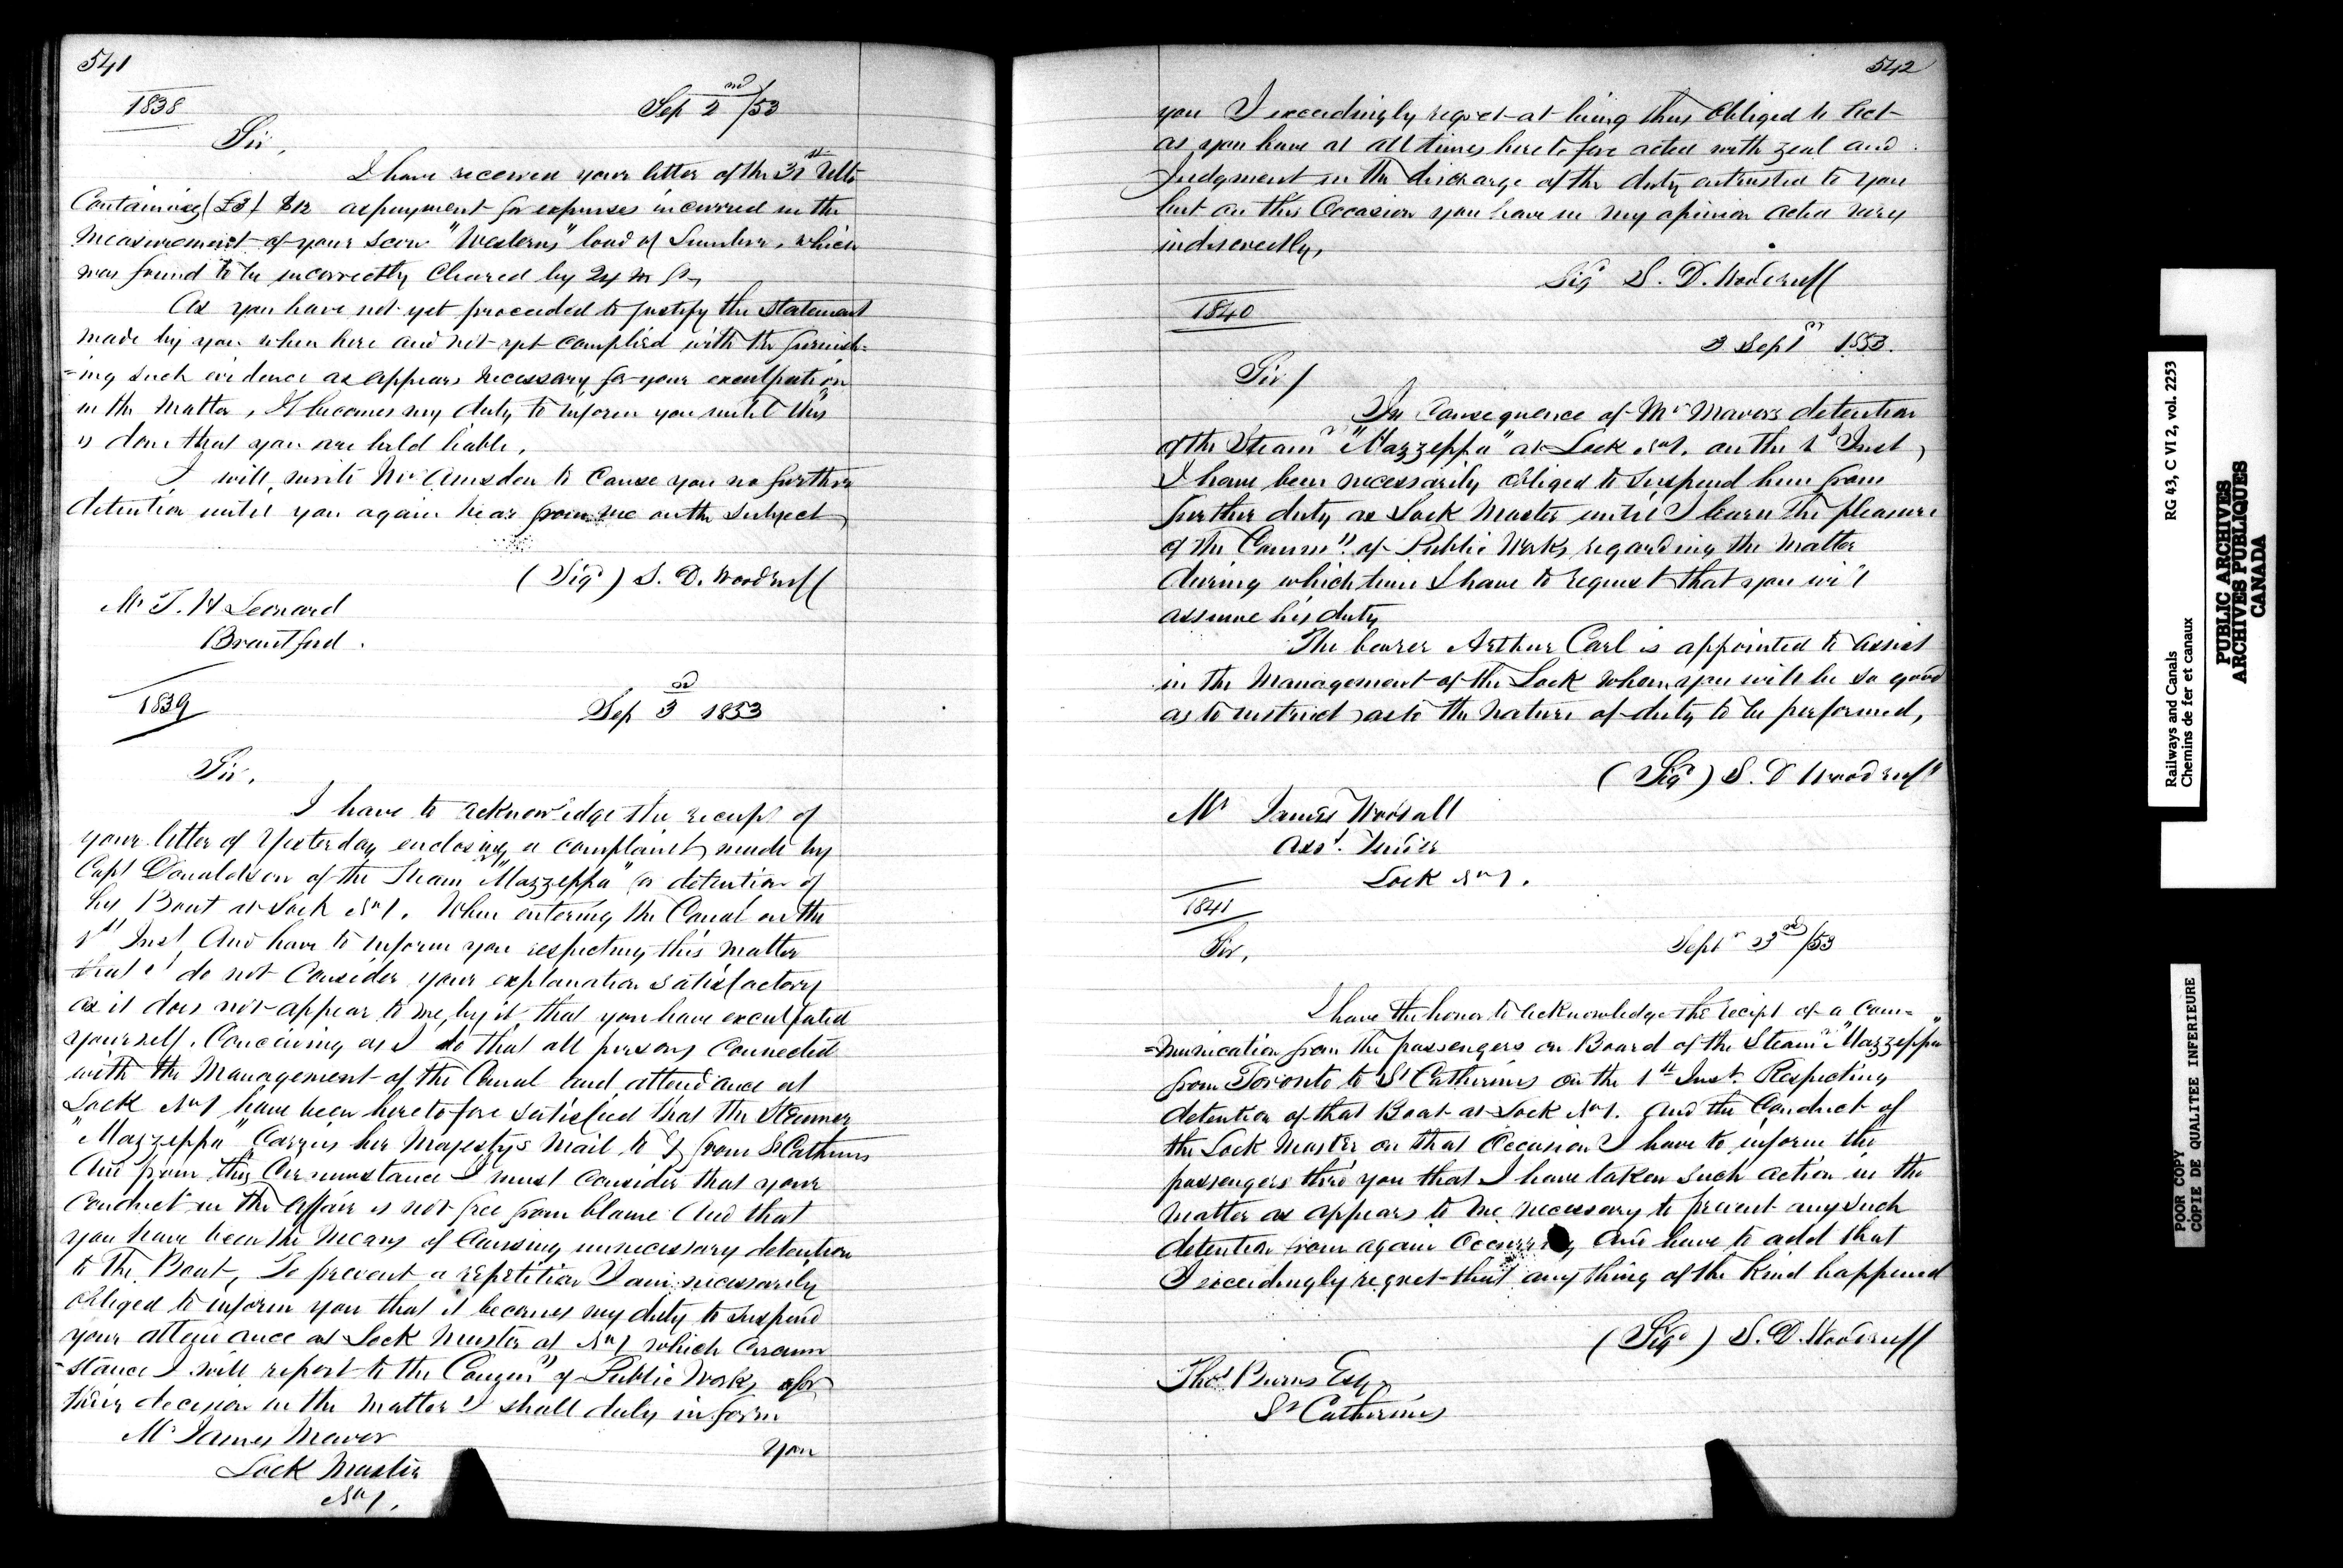 541
1838
Sep 2nd/53
Sir,
I have received your letter of the 31st Ulto
Containing (£3) $12 as payment for expenses incurred in the
Measurement of your Scow "Western's" load of Lumber, which
was found to be incorrectly Cleared by 24 M ft,
As you have not yet proceeded to justify the statement
made by you when here and not yet complied with the furnish=
=ing such evidence as appears necessary for your exculpation
in the matter, It becomes my duty to inform you until this
is done that you are held liable,
I will write Mr Amsden to Cause you no further
detention until you again hear from me on the Subject
(Sigd) S. D. Woodruff
Mr T. H Leonard
Brantford.
1839
Sep 3rd 1853
Sir,
I have to acknowledge the receipt of
your letter of Yesterday enclosing a complaint made by
Capt Donaldson of the Steamr "Mazzeppa" for detention of
his Boat at Lock No 1. When entering the Canal on the
1st Inst And have to inform you respecting this matter
that I do not Consider your explanation satisfactory
as it does not appear to me, by it, that you have exculpated
yourself. Conceiving as I do that all persons Connected
with the Management of the Canal and attendance at
Lock No 1 have been heretofore satisfied that the Steamer
"Mazzeppa" Carries her Majesty's Mail to & from St Catherines
And from this Circumstance I must Consider that your
Conduct in the Affair is not free from blame And that
you have been the Means of Causing unnecessary detention
to the Boat, To prevent a repetition I am necessarily
obliged to inform you that it becomes my duty to suspend
your attendance as Lock Master at No 1 which Circum
=stance I will report to the Commrs of Public Works
their decision in the matter I shall duly inform
Mr James Mavor
you
Lock Master
No 1.
542
you I exceedingly regret at being thus Obliged to Act
as you have at all times heretofore acted with zeal and
Judgment in the discharge of the duty entrusted to you
but on this Occasion you have in my opinion acted very
indiscreetly,
Sigd S. D. Woodruff
1840
3 Septr 1853.
Sir/
In Consequence of Mr Mavors detention
of the Steamr "Mazzeppa" at Lock No 1. on the 1st Inst,
I have been necessarily obliged to suspend him from
further duty as Lock Master until I learn the pleasure
of the Commrs of Public Works regarding the Matter
during which time I have to request that you will
assume his duty
The bearer Arthur Carl is appointed to assist
in the Management of the Lock whom you will be so good
as to instruct as to the nature of duty to be performed,
(Sigd) S. D Woodruff
Mr James Woodall
Asst. Tender
Lock No 1.
1841
Septr 3rd/53
Sir,
I have the honor to acknowledge the receipt of a Com=
=munication from the passengers on Board of the Steamr "Mazzeppa"
from Toronto to St Catherines on the 1st Inst. Respecting
detention of that Boat at Lock No 1. And the Conduct of
the Lock Master on that Occasion I have to inform the
passengers thro' you that I have taken such action in the
matter as appears to me necessary to prevent any such
detention from again Occurring And have to add that
I exceedingly regret that any thing of the Kind happened
(Sigd) S. D. Woodruff
Thos Burns Esq.
St Catherines
Railways and Canals RG 43, C VI 2, vol. 2253
Chemins de fer et canaux
PUBLIC ARCHIVES
ARCHIVES PUBLIQUES
CANADA
POOR COPY
COPIE DE QUALITEE INFERIEURE